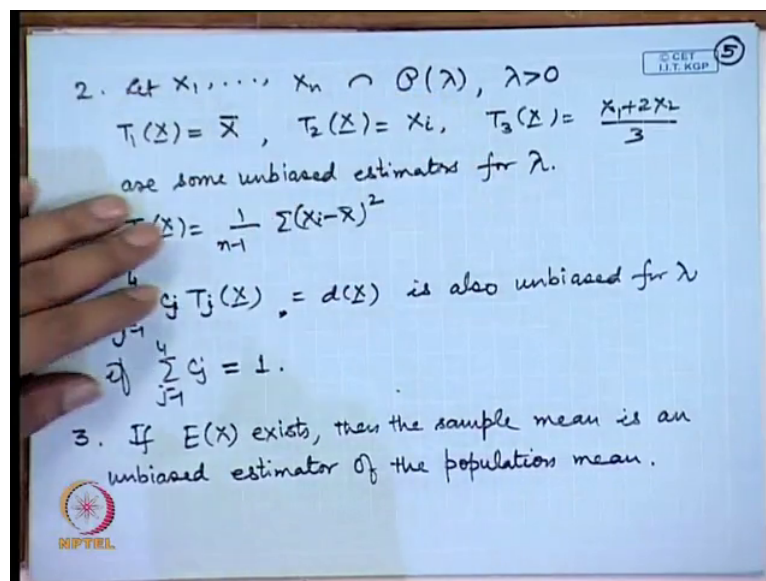 © CET
I.I.T. KGP
5
2. Let X₁, ...., Xₙ ∩ P(λ), λ>0
T₁(X) = X̄, T₂(X) = Xi, T₃(X) = (X₁+2X₂)/3
are some unbiased estimators for λ.
(X) = 1/(n-1) Σ(Xi-X̄)²
4
cj Tj(X) = d(X) is also unbiased for λ
j=1
if Σ⁴j=1 cj = 1.
3. If E(X) exists, then the sample mean is an
unbiased estimator of the population mean.
NPTEL